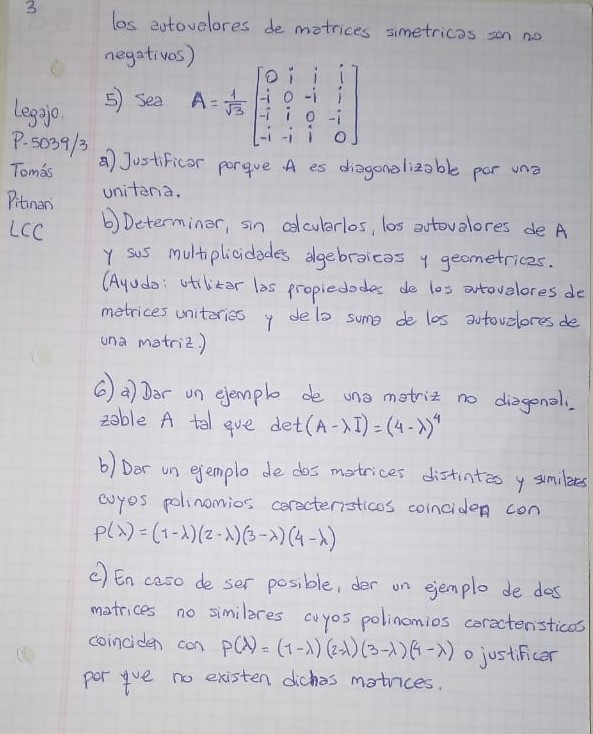 3
los autovalores de matrices simetricas son no
negativos)
Legajo:
P-5039/3
Tomás
Pitinari
LCC
5) Sea A = 1/√3 [0 i i i
-i 0 -i i
-i i 0 -i
-i -i i 0]
a) Justificar porque A es diagonalizable por una
unitaria.
b) Determinar, sin calcularlos, los autovalores de A
y sus multiplicidades algebraicas y geometricas.
(Ayuda: utilizar las propiedades de los autovalores de
matrices unitarias y de la suma de los autovalores de
una matriz.)
6) a) Dar un ejemplo de una matriz no diagonali_
zable A tal que det(A-λI)=(4-λ)⁴
b) Dar un ejemplo de dos matrices distintas y similares
cuyos polinomios caracteristicos coinciden con
p(λ)=(1-λ)(2-λ)(3-λ)(4-λ)
c) En caso de ser posible, dar un ejemplo de dos
matrices no similares cuyos polinomios caracteristicos
coinciden con p(λ)=(1-λ)(2-λ)(3-λ)(4-λ) o justificar
por que no existen dichas matrices.